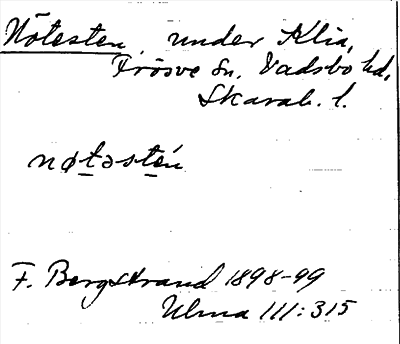 Nötesten, under Klia,
Frösve sn. Vadsbo hd,
Skarab. l.
nøtəsten
F. Bergstrand 1898-99
Ulma 111:315